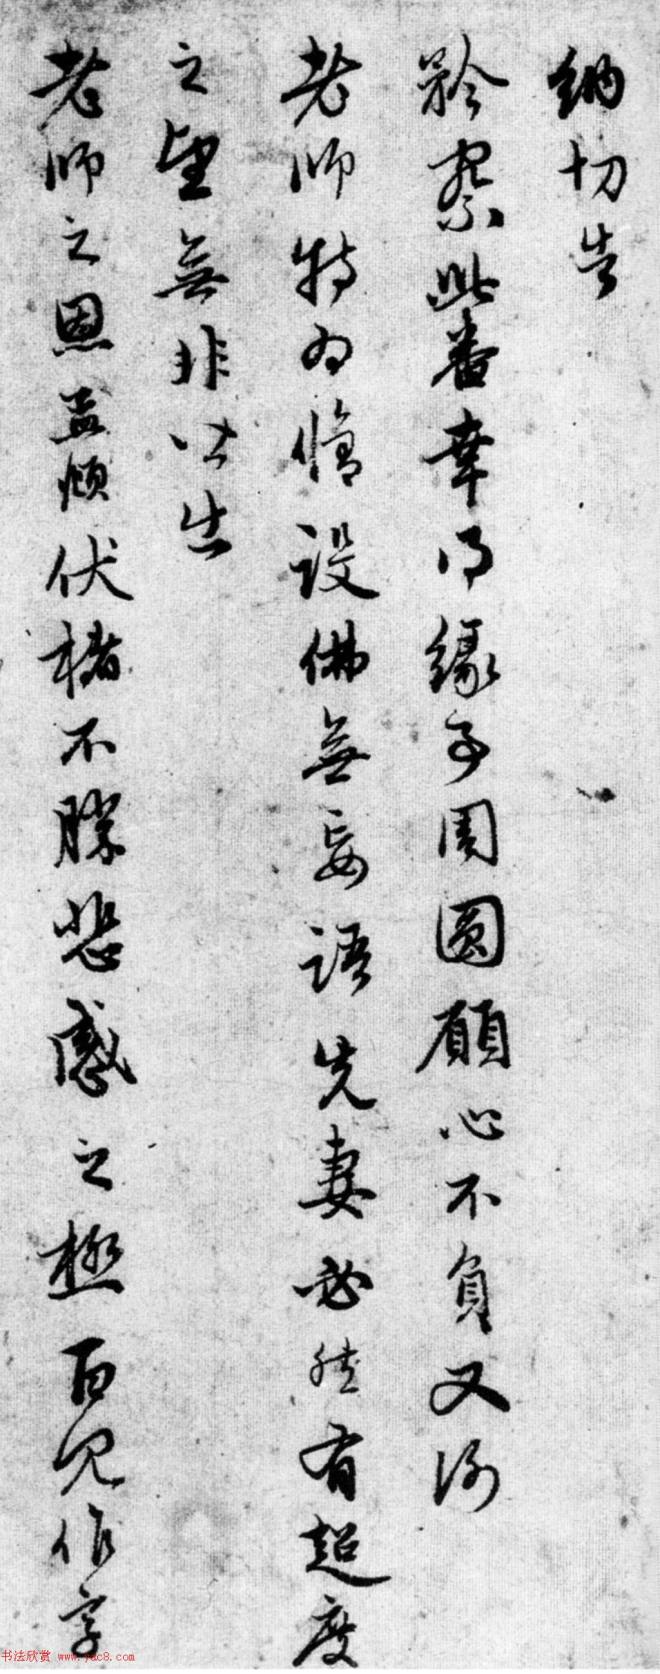 納切告
矜察此番幸得緣子周圓願心不負又得
老師特為懺設佛無妄語先妻必然有超度
之望無非皆出
老師之恩孟頫伏楮不勝悲感之極百冗作字
书法欣赏 www.yac8.com